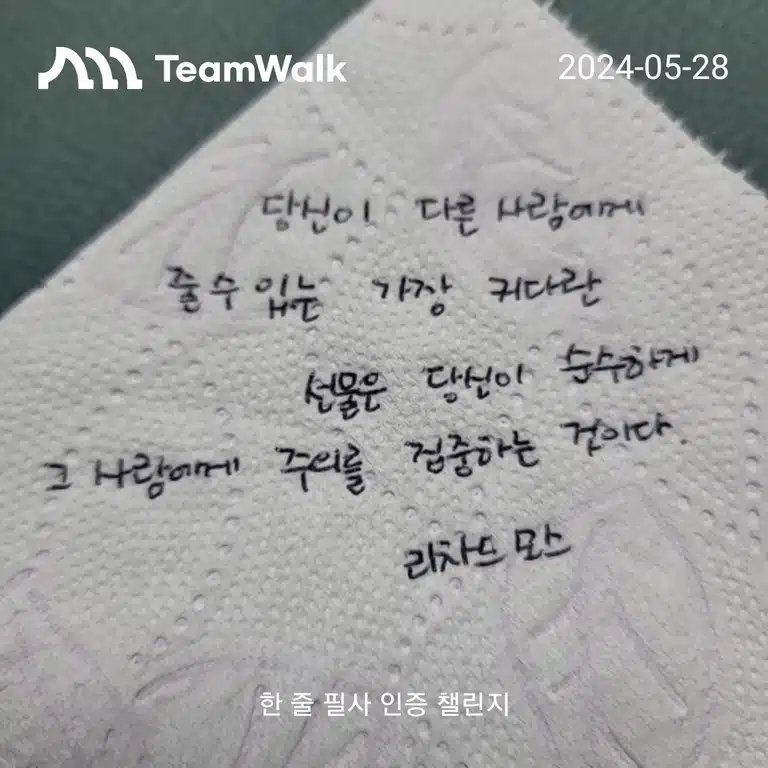 TeamWalk
2024-05-28
당신이 다른 사람에게
줄 수 있는 가장 커다란
선물은 당신이 순수하게
그 사람에게 주의를 집중하는 것이다.
리차드 모스
한 줄 필사 인증 챌린지